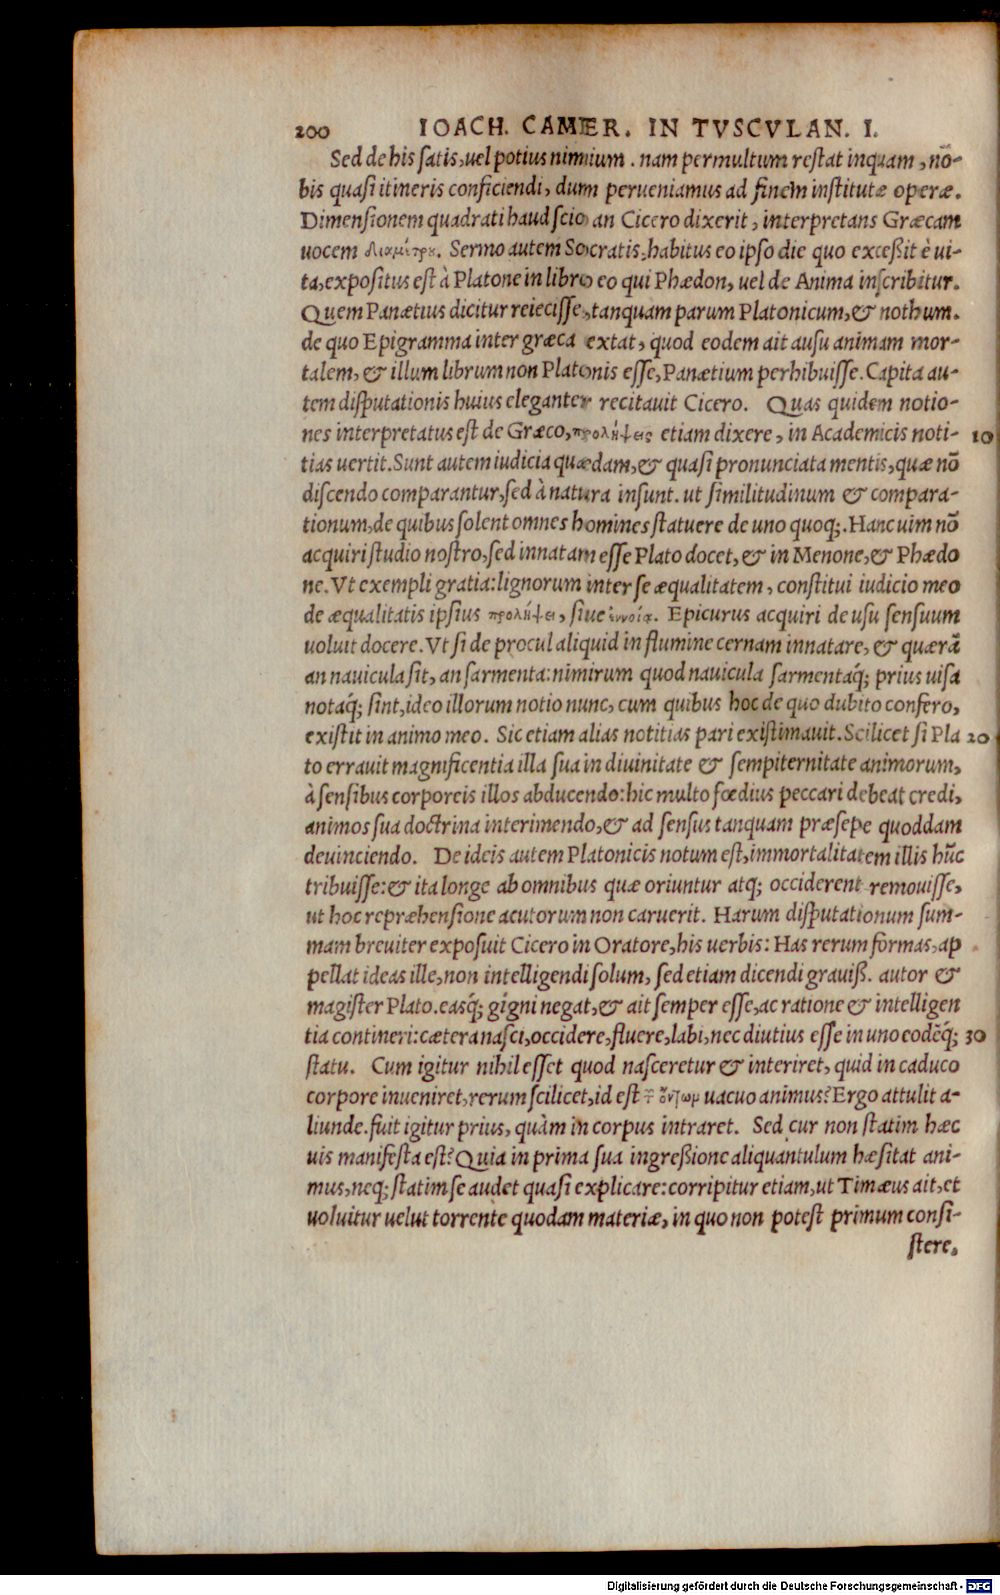 200 IOACH. CAMER. IN TVSCVLAN. I.
Sed de his satis, uel potius nimium. nam permultum restat inquam, nō-
bis quasi itineris conficiendi, dum perueniamus ad finem institutæ operæ.
Dimensionem quadrati haud scio an Cicero dixerit, interpretans Græcam
uocem διαμέτρου. Sermo autem Socratis, habitus eo ipso die quo exceßit è ui-
ta, expositus est à Platone in libro eo qui Phædon, uel de Anima inscribitur.
Quem Panætius dicitur reiecisse, tanquam parum Platonicum, & nothum.
de quo Epigramma inter græca extat, quod eodem ait ausu animam mor-
talem, & illum librum non Platonis esse, Panætium perhibuisse. Capita au-
tem disputationis huius eleganter recitauit Cicero. Quas quidem notio-
nes interpretatus est de Græco, προλήψεις etiam dixere, in Academicis noti- 10
tias uertit. Sunt autem iudicia quædam, & quasi pronunciata mentis, quæ nō
discendo comparantur, sed à natura insunt. ut similitudinum & compara-
tionum, de quibus solent omnes homines statuere de uno quoq;. Hanc uim nō
acquiri studio nostro, sed innatam esse Plato docet, & in Menone, & Phædo
ne. Vt exempli gratia: lignorum inter se æqualitatem, constitui iudicio meo
de æqualitatis ipsius προλήψει, siue ἐννοίᾳ. Epicurus acquiri de usu sensuum
uoluit docere. Vt si de procul aliquid in flumine cernam innatare, & quærā
an nauicula sit, an sarmenta: nimirum quod nauicula sarmentaq́; prius uisa
notaq́; sint, ideo illorum notio nunc, cum quibus hoc de quo dubito confero,
existit in animo meo. Sic etiam alias notitias pari existimauit. Scilicet si Pla 20
to errauit magnificentia illa sua in diuinitate & sempiternitate animorum,
à sensibus corporeis illos abducendo: hic multo fœdius peccari debeat credi,
animos sua doctrina interimendo, & ad sensus tanquam præsepe quoddam
deuinciendo. De ideis autem Platonicis notum est, immortalitatem illis hūc
tribuisse: & ita longe ab omnibus quæ oriuntur atq; occiderent remouisse,
ut hoc repræhensione acutorum non caruerit. Harum disputationum sum-
mam breuiter exposuit Cicero in Oratore, his uerbis: Has rerum formas, ap
pellat ideas ille, non intelligendi solum, sed etiam dicendi grauiß. autor &
magister Plato. easq́; gigni negat, & ait semper esse, ac ratione & intelligen
tia contineri: cætera nasci, occidere, fluere, labi, nec diutius esse in uno eodēq́; 30
statu. Cum igitur nihil esset quod nasceretur & interiret, quid in caduco
corpore inueniret, rerum scilicet, id est τῶν ὄντων uacuo animus? Ergo attulit a-
liunde. fuit igitur prius, quàm in corpus intraret. Sed cur non statim hæc
uis manifesta est? Quia in prima sua ingreßione aliquantulum hæsitat ani-
mus, neq; statim se audet quasi explicare: corripitur etiam, ut Timæus ait, et
uoluitur uelut torrente quodam materiæ, in quo non potest primum consi-
stere.
Digitalisierung gefördert durch die Deutsche Forschungsgemeinschaft - DFG